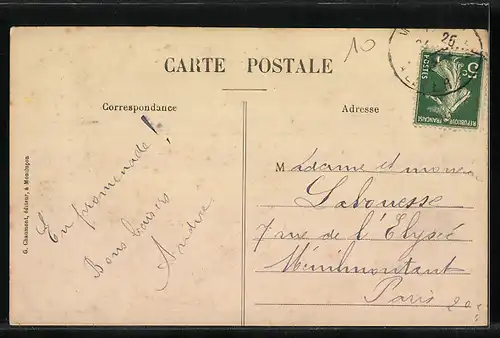 10
CARTE POSTALE
Correspondance
Adresse
5c
POSTES
RÉPUBLIQUE FRANÇAISE
25
En promenade!
Bons baisers
Andrée
G. Chaumont, éditeur, à Mondragon
Madame et monsieur
Labouesse
7 rue de l'Elysée
Ménilmontant
Paris 20e